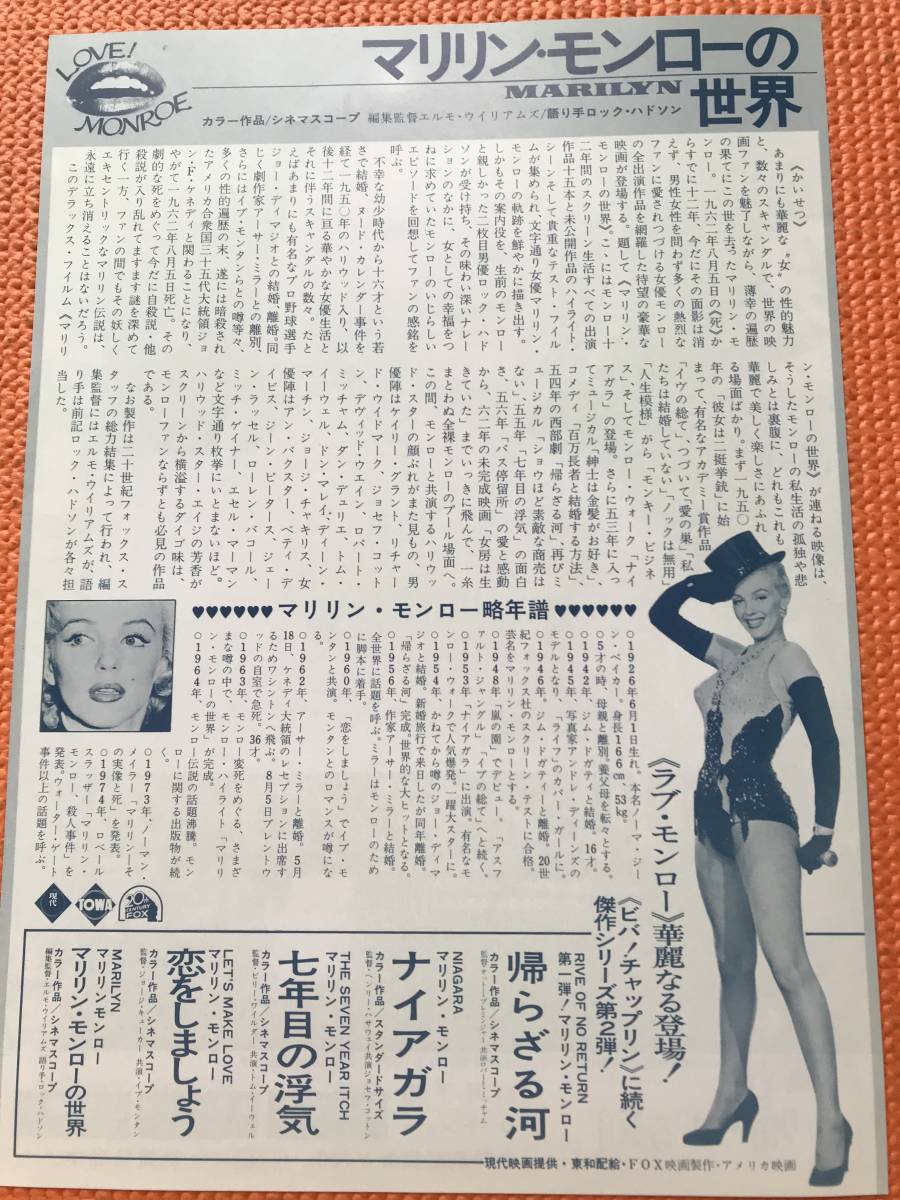 LOVE!
MONROE
マリリン・モンローの
MARILYN
世界
カラー作品/シネマスコープ 編集監督エルモ・ウイリアムズ/語り手ロック・ハドソン
《かいせつ》
あまりにも華麗な〝女〟の性的魅力
と、数々のスキャンダルで、世界の映
画ファンを魅了しながら、薄幸の遍歴
の果てにこの世を去ったマリリン・モ
ンロー。一九六二年八月五日の《死》か
らすでに十二年、今だにその面影は消
えず、男性女性を問わず多くの熱烈な
ファンに愛されつづける女優モンロー
の全出演作品を網羅した待望の豪華な
映画が登場する。題して《マリリン・
モンローの世界》。こゝにはモンロー十
二年間のスクリーン生活すべての出演
作品十五本と未公開作品のハイライト・
シーンそして貴重なテスト・フイル
ムが集められ、文字通り女優マリリン・
モンローの軌跡を鮮やかに描き出す。
しかもその案内役を、生前のモンロー
と親しかった二枚目男優ロック・ハド
ソンが受け持ち、その味わい深いナレー
ションのなかに、女としての幸福をつ
ねに求めていたモンローのいじらしい
エピソードを回想してファンの感銘を
呼ぶ。
不幸な幼少時代から十六才という若
さで結婚、ヌード・カレンダー事件を
経て一九五〇年のハリウッド入り、以
後十二年間に亘る華やかな女優生活と
それに伴うスキャンダルの数々。たと
えばあまりにも有名なプロ野球選手
ジョー・ディ マジオとの結婚、離婚。同
じく劇作家アーサー・ミラーとの離別、
さらにはイブ・モンタンらとの噂等々、
多くの性的遍歴の末、遂には暗殺され
たアメリカ合衆国三十五代大統領ジョ
ン・F・ケネディと関わることになり、
やがて一九六二年八月五日死亡。その
劇的な死をめぐって今だに自殺説・他
殺説が入り乱れてますます謎を深めて
行く一方、ファンの間でもその妖しく
エキセントリックなマリリン伝説は、
永遠に立ち消えることはないだろう。
このデラックス・フイルム《マリリ
ン・モンローの世界》が連ねる映像は、
そうしたモンローの私生活の孤独や悲
しみとは裏腹に、どれもこれも
華麗で美しく楽しさにあふれ
る場面ばかり。まず一九五〇
年の「彼女は二挺拳銃」に始
まって、有名なアカデミー賞作品
「イヴの総て」、つづいて「愛の巣」「私
たちは結婚していない」「ノックは無用」
「人生模様」から「モンキー・ビジネ
ス」、そしてモンロー・ウォーク「ナイ
アガラ」の登場。さらに五三年に入っ
てミュージカル「紳士は金髪がお好き」、
コメディ「百万長者と結婚する方法」、
五四年の西部劇「帰らざる河」、再びミ
ュージカル「ショウほど素敵な商売は
ない」、五五年「七年目の浮気」の面白
さ、五六年「バス停留所」の愛と感動
から、六二年の未完成映画「女房は生
きていた」までいっきに飛んで、一糸
まとわぬ全裸モンローのプール場面へ。
この間、モンローと共演するハリウッ
ド・スターの顔ぶれがまた見もの、男
優陣はケイリー・グラント、リチャー
ド・ウイドマーク、ジョセフ・コット
ン、デヴィッド・ウエイン、ロバート・
ミッチャム、ダン・デュリエ、トム・
イーウェル、ドン・マレイ、ディーン・
マーチン、ジョージ・チャキリス、女
優陣はアン・バクスター、ベティ・デ
イビス、ジーン・ピータース、ジェー
ン・ラッセル、ローレン・バコール、
ミッチ・ゲイナー、エセル・マーマン
など文字通り枚挙にいとまないほど。
ハリウッド・スター・エイジの芳香が
スクリーンから横溢するダイゴ味は、
モンローファンならずとも必見の作品
である。
なお製作は二十世紀フォックス・ス
タッフの総力結集によって行われ、編
集監督にはエルモ・ウイリアムズが、語
り手は前記ロック・ハドソンが各々担
当した。
♥♥♥♥♥♥マリリン・モンロー略年譜♥♥♥♥♥♥
○1926年6月1日生れ。本名ノーマ・ジー
ン・ベイカー。身長166cm、53kg。
○5才の時、母親と離別。養父母を転々とする。
○1942年、ジム・ドガティと結婚。16才。
○1945年、写真家アンドレ・ディーンズの
モデルとなり、「ライフ」のカバー・ガールに。
○1946年、ジム・ドガティーと離婚。20世
紀フォックス社のスクリーン・テストに合格。
芸名をマリリン・モンローとする。
○1948年「嵐の園」でデビュー。「アスフ
ァルト・ジャングル」「イブの総て」へと続く。
○1953年「ナイアガラ」に出演。有名なモ
ンロー・ウォークで人気爆発。一躍大スターに。
○1954年、かねてから噂のジョー・ディマ
ジオと結婚。新婚旅行で来日したが同年離婚。
「帰らざる河」完成。世界的な大ヒットとなる。
○1956年、作家アーサー・ミラーと結婚。
全世界に話題を呼ぶ。ミラーはモンローのため
に脚本に着手。
○1960年、「恋をしましょう」でイブ・モ
ンタンと共演。モンタンとのロマンスが噂にな
る。
○1962年、アーサー・ミラーと離婚。5月
18日、ケネディ大統領のレセプションに出席す
るためワシントンへ飛ぶ。8月5日ブレントウ
ッドの自室で急死。36才。
○1963年、モンロー変死をめぐる、さまざ
まな噂の中で、モンロー・ハイライト「マリリ
ン・モンローの世界」が完成。
○1964年、モンロー伝説の話題沸騰。モン
ローに関する出版物が続
く。
○1973年、ノーマン・
メイラー「マリリンーそ
の実像と死」を発表。
○1974年、ロベール・
スラッザー「マリリン・
モンロー、殺人事件」を
発表。ウォーター・ゲート
事件以上の話題を呼ぶ。
現代
TOWA
20th CENTURY FOX
《ラブ・モンロー》華麗なる登場！
《ビバ！チャップリン》に続く
傑作シリーズ第2弾！
RIVE OF NO RETURN
第一弾！マリリン・モンロー
帰らざる河
カラー作品/シネマスコープ
監督・オットー・プレミンジャー 共演・ロバート・ミッチャム
NIAGARA
マリリン・モンロー
ナイアガラ
カラー作品/スタンダードサイズ
監督・ヘンリー・ハサウェイ 共演・ジョセフ・コットン
THE SEVEN YEAR ITCH
マリリン・モンロー
七年目の浮気
カラー作品/シネマスコープ
監督・ビリー・ワイルダー 共演・トム・イーウェル
LET'S MAKE LOVE
マリリン・モンロー
恋をしましょう
カラー作品/シネマスコープ
監督・ジョージ・キューカー 共演・イブ・モンタン
MARILYN
マリリン モンロー
マリリン・モンローの世界
カラー作品/シネマスコープ
編集監督・エルモ・ウイリアムズ 語り手・ロック・ハドソン
現代映画提供・東和配給・FOX映画製作・アメリカ映画